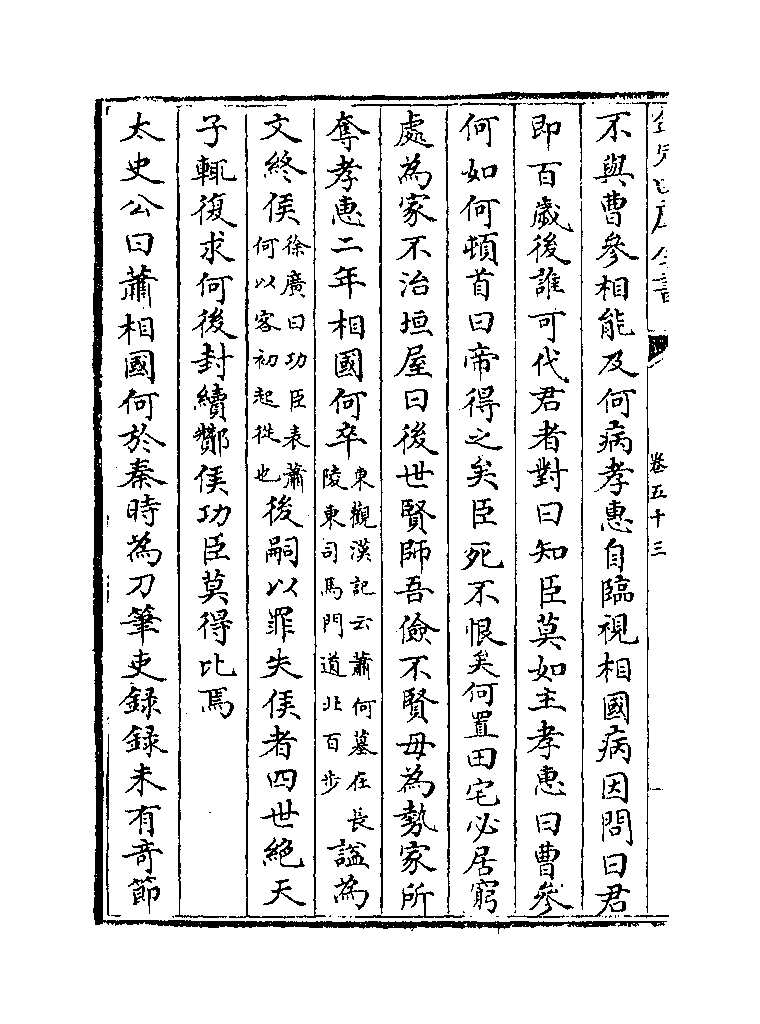 卷五十三
不與曹參相能及何病孝惠自臨視相國病因問曰君
即百歲後誰可代君者對曰知臣莫如主孝惠曰曹參
何如何頓首曰帝得之矣臣死不恨矣何置田宅必居窮
處為家不治垣屋曰後世賢師吾儉不賢毋為勢家所
奪孝惠二年相國何卒東觀漢記云蕭何墓在長陵東司馬門道北百步諡為
文終侯徐廣曰功臣表蕭何以客初起從也後嗣以罪失侯者四世絶天
子輒復求何後封續酇侯功臣莫得比焉
太史公曰蕭相國何於秦時為刀筆吏録録未有奇節